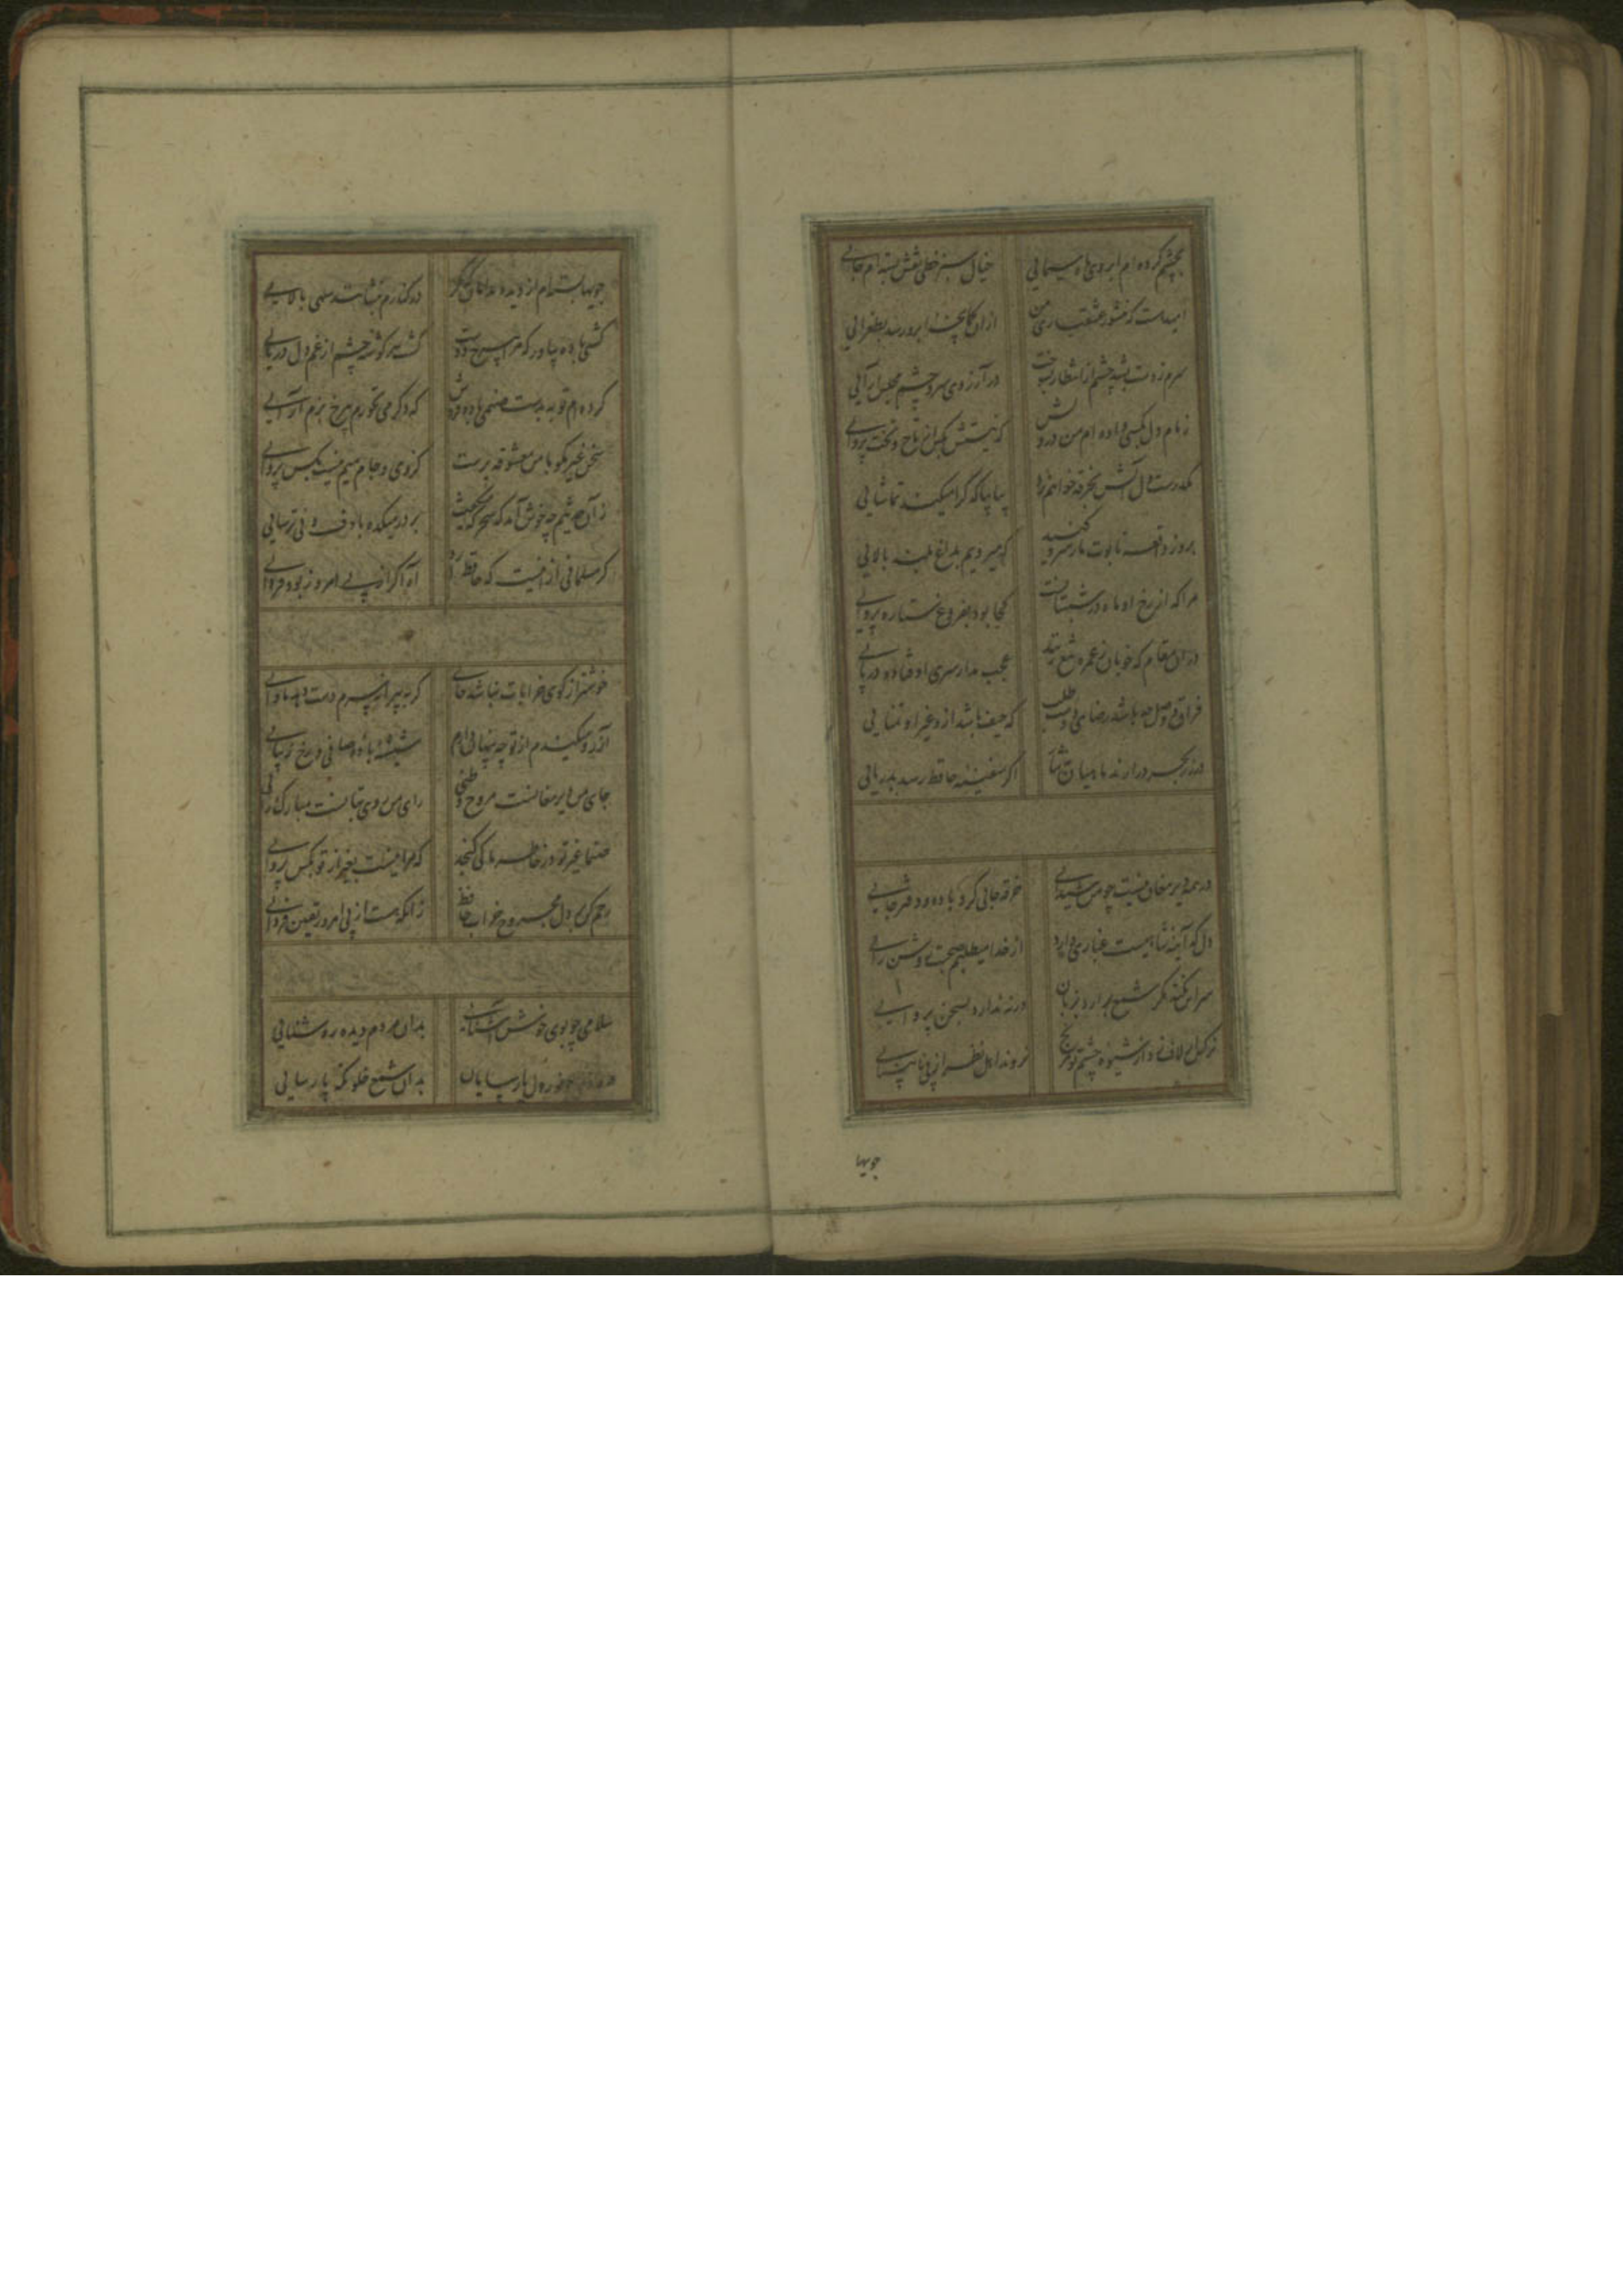 بچشم کرده ام ابروی ماه سیمایی خیال سبز خطی نقش بسته ام جایی
امیدست که منشور عشقبازی من ازان کمانچه ابرو رسد بطغرایی
سرم ز دست بشد چشم از انتظار بسوخت در آرزوی سر و چشم مجلس آرایی
زمام دل بکسی داده ام من درویش که نیستش بکس از تاج و تخت پروایی
مکدرست دل آتش بخرقه خواهم زد بیا بیا که کرا میکند تماشایی
بروز واقعه تابوت ما ز سرو کنید که میرویم بداغ بلند بالایی
مرا که از رخ او ماه در شبستانست کجا بود بفروغ ستاره پروایی
دران مقام که خوبان ز غمزه تیغ زنند عجب مدار سری اوفتاده در پایی
فراق و وصل چه باشد رضای دوست طلب که حیف باشد ازو غیر او تمنایی
درر ز بحر برارند ماهیان اکر سفینه حافظ رسد بدریایی
در همه دیر مغان نیست چو من شیدایی خرقه جایی کرو باده و دفتر جایی
دل که آیینه شاهیست غباری دارد از خدا میطلبم صحبت روشن رایی
سر این نکته مکر شمع برارد بزبان ورنه پروانه ندارد بسخن پروایی
نرکس ار لاف زد از شیوه چشم تو مرنج نروند اهل نظر از پی نابینایی
جویها
جویها بسته ام از دیده بدامان که مکر در کنارم بنشانند سهی بالایی
کشتی باده بیاور که مرا بی رخ دوست کشت هر کوشه چشم از غم دل دریایی
کرده ام توبه بدست صنمی باده فروش که دکر می نخورم بی رخ بزم آرایی
سخن غیر مکو با من معشوقه پرست کز وی و جام میم نیست بکس پروایی
زان حدیثم چه خوش آمد که سحرکه میکفت بر در میکده با دف و نی ترسایی
کر مسلمانی ازینست که حافظ دارد آه اکر از پی امروز بود فردایی
خوشتر از کوی خرابات نباشد جایی کر به پیرانه سرم دست دهد ماوایی
آرزو میکندم از تو چه پنهان دارم شیشه باده صافی و رخ زیبایی
جای من دیر مغانست مروح وطنی رای من روی بتانست مبارک رایی
صنما غیر تو در خاطر ما کی کنجد که مرا نیست بغیر از تو بکس پروایی
رحم کن بر دل مجروح خراب حافظ زانکه هست از پی امروز یقین فردایی
سلامی چو بوی خوش آشنایی بدان مردم دیده روشنایی
درودی چو نور دل پارسایان بدان شمع خلوتکه پارسایی